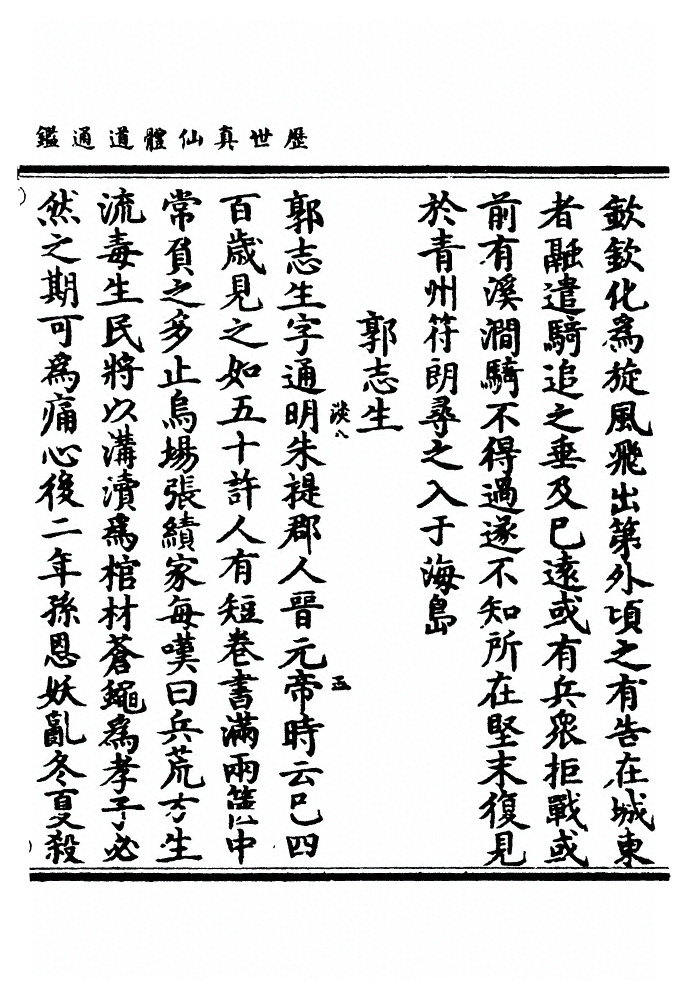 歷世真仙體道通鑑
欽欽化為旋風飛出第外頃之有告在城東
者融遣騎追之垂及已遠或有兵眾拒戰或
前有溪澗騎不得過遂不知所在堅末復見
於青州符朗尋之入于海島
郭志生
淡八
郭志生字通明朱提郡人晉元帝時云已四
五
百歲見之如五十許人有短卷書滿兩篋中
常負之多止烏場張績家每嘆曰兵荒方生
流毒生民將以溝瀆為棺材蒼蠅為孝子必
然之期可為痛心後二年孫恩妖亂冬夏殺